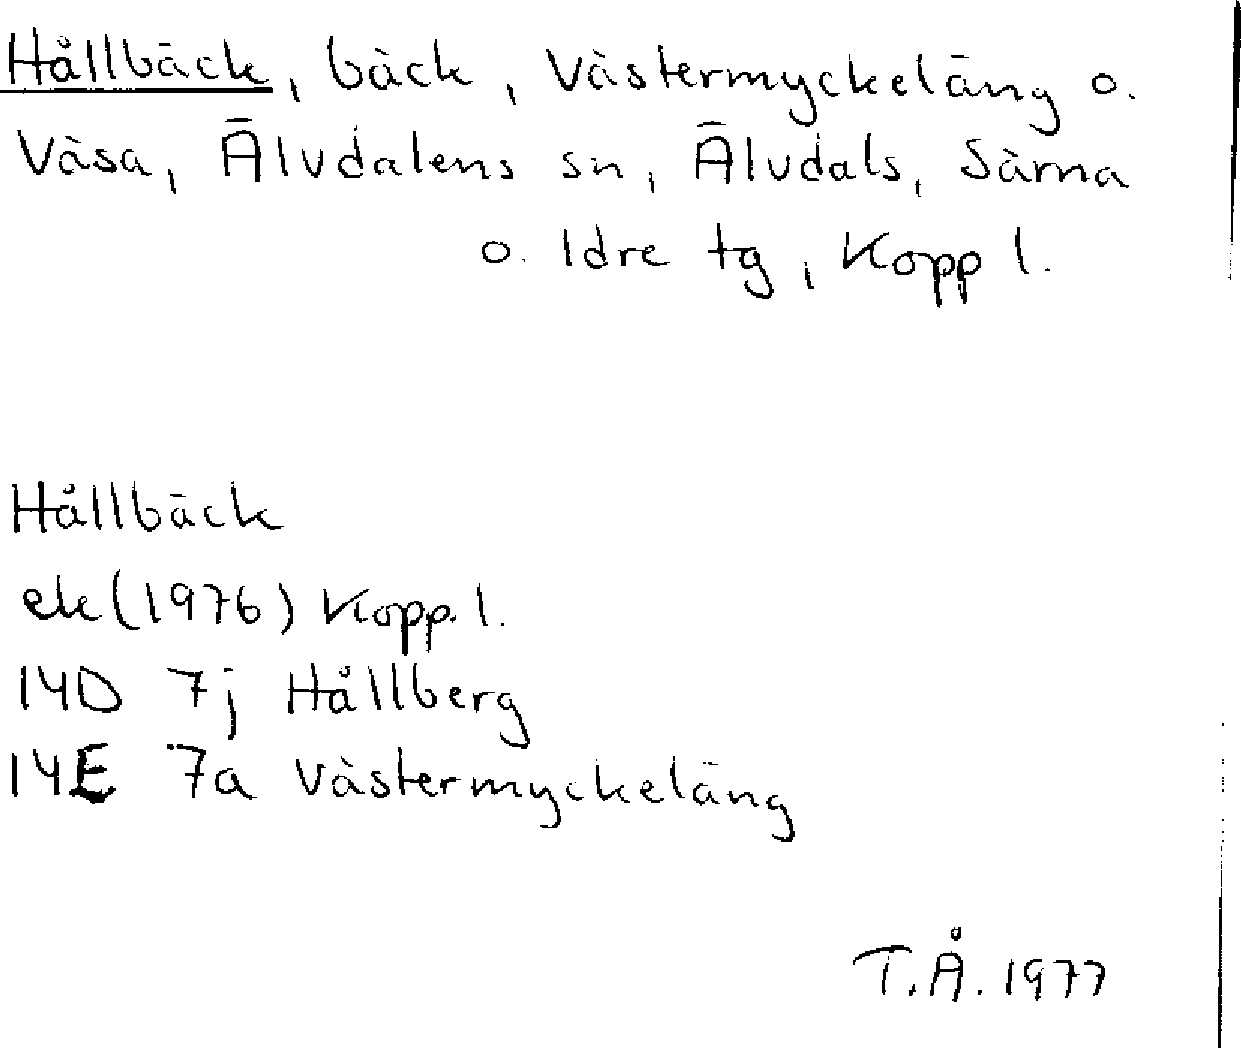 Hållbäck, bäck, Västermyckeläng o.
Väsa, Älvdalens sn, Älvdals, Särna
o. Idre tg, Kopp l.
Hållbäck
ek (1976) Kopp. l.
14D 7j Hållberg
14E 7a Västermyckeläng
T.Å. 1977